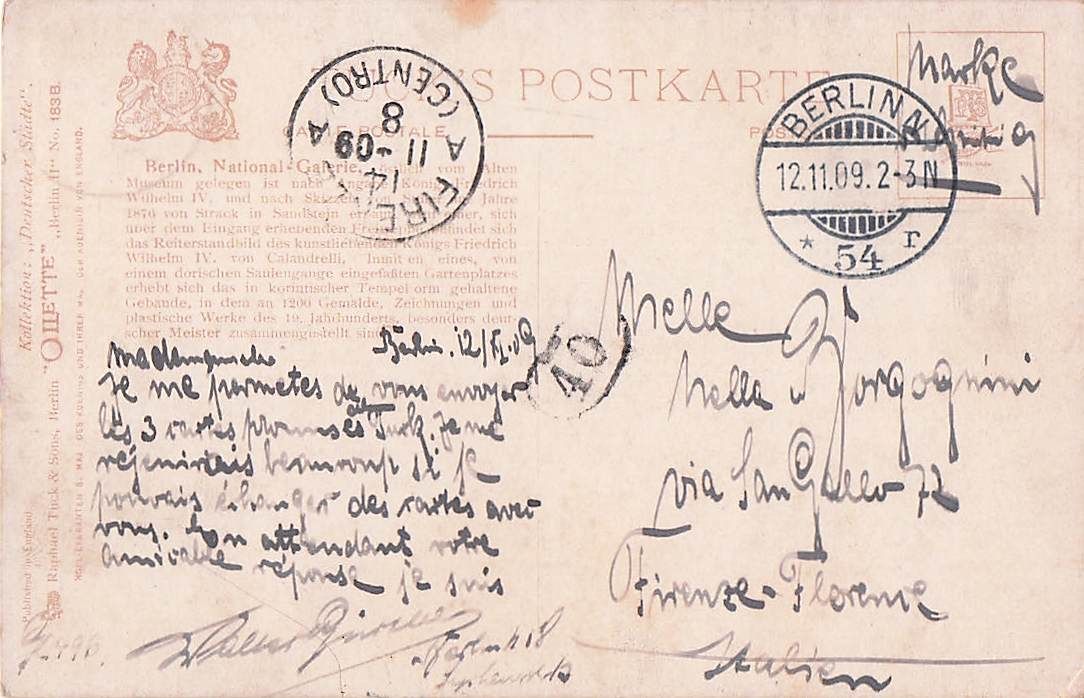 TUCK'S POSTKARTE
CARTE POSTALE
Marke
BERLIN N.
12.11.09. 2-3N
* 54 r
FIRENZE
A (CENTRO) A
14
11-09
8
Berlin, National-Galerie.
Museum gelegen ist nach Angabe König Friedrich
Wilhelm IV. und nach Skizzen Jahre
1876 von Strack in Sandstein sich
über dem Eingang erhebenden befindet sich
das Reiterstandbild des kunstliebenden Königs Friedrich
Wilhelm IV. von Calandrelli. Inmitten eines, von
einem dorischen Säulengange eingefaßten Gartenplatzes
erhebt sich das in korintischer Tempelform gehaltene
Gebäude, in dem an 1200 Gemälde, Zeichnungen und
plastische Werke des 19. Jahrhunderts, besonders deut-
scher Meister zusammengestellt sind
Kollektion: „Deutscher Städte".
"OILETTE" „Berlin II" No. 183B.
Raphael Tuck & Sons, Berlin
Published in England
HOFLIEFERANTEN S. MAJ. DES KOENIGS UND IHRER MAJ. DER KOENIGIN VON ENGLAND.
Berlin. 12/XI.09
40
Je me permetes de vous envoyer
les 3 cartes promises de Tuck. Je me
rejouirais beaucoup si je
pouvais échanger des cartes avec
vous. En attendant votre
amicable réponse je suis
Walter
Berlin N 18
Melle
Nella Borgognini
via San Gallo 72
Firenze-Florence
Italien